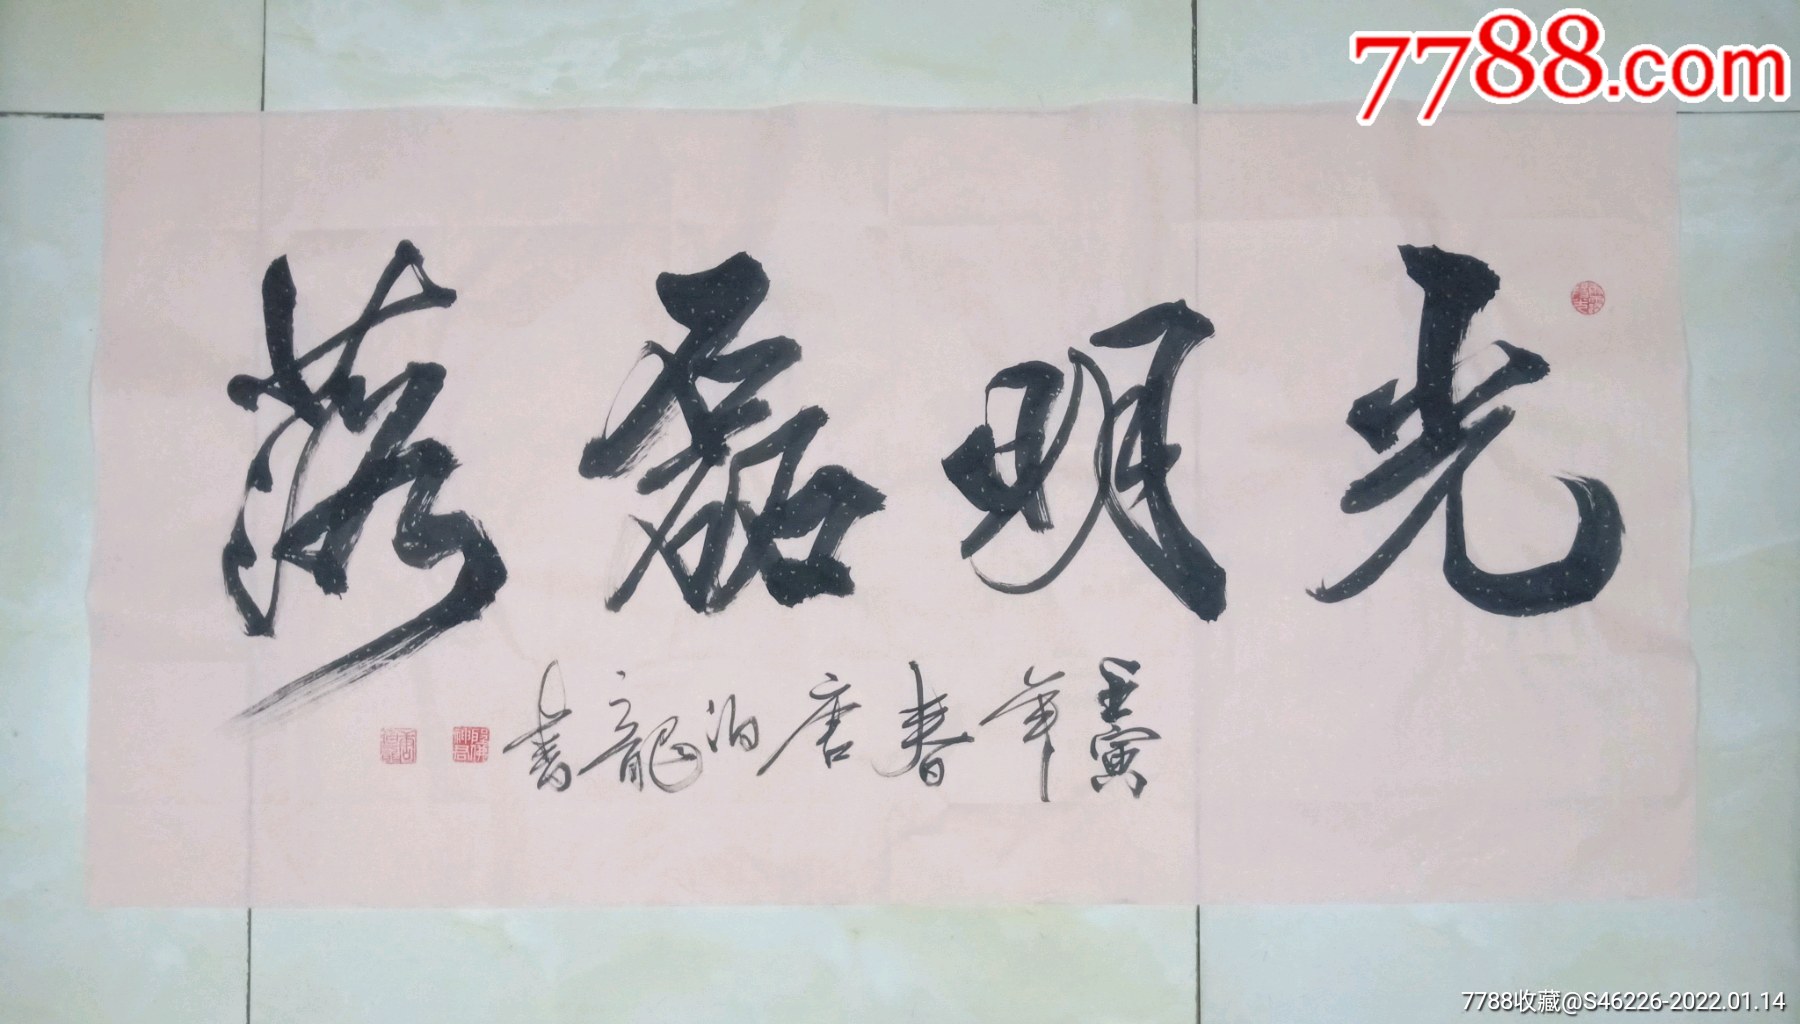 7788.com
光明磊落
壬寅年春唐泊龍书
7788收藏@S46226-2022.01.14